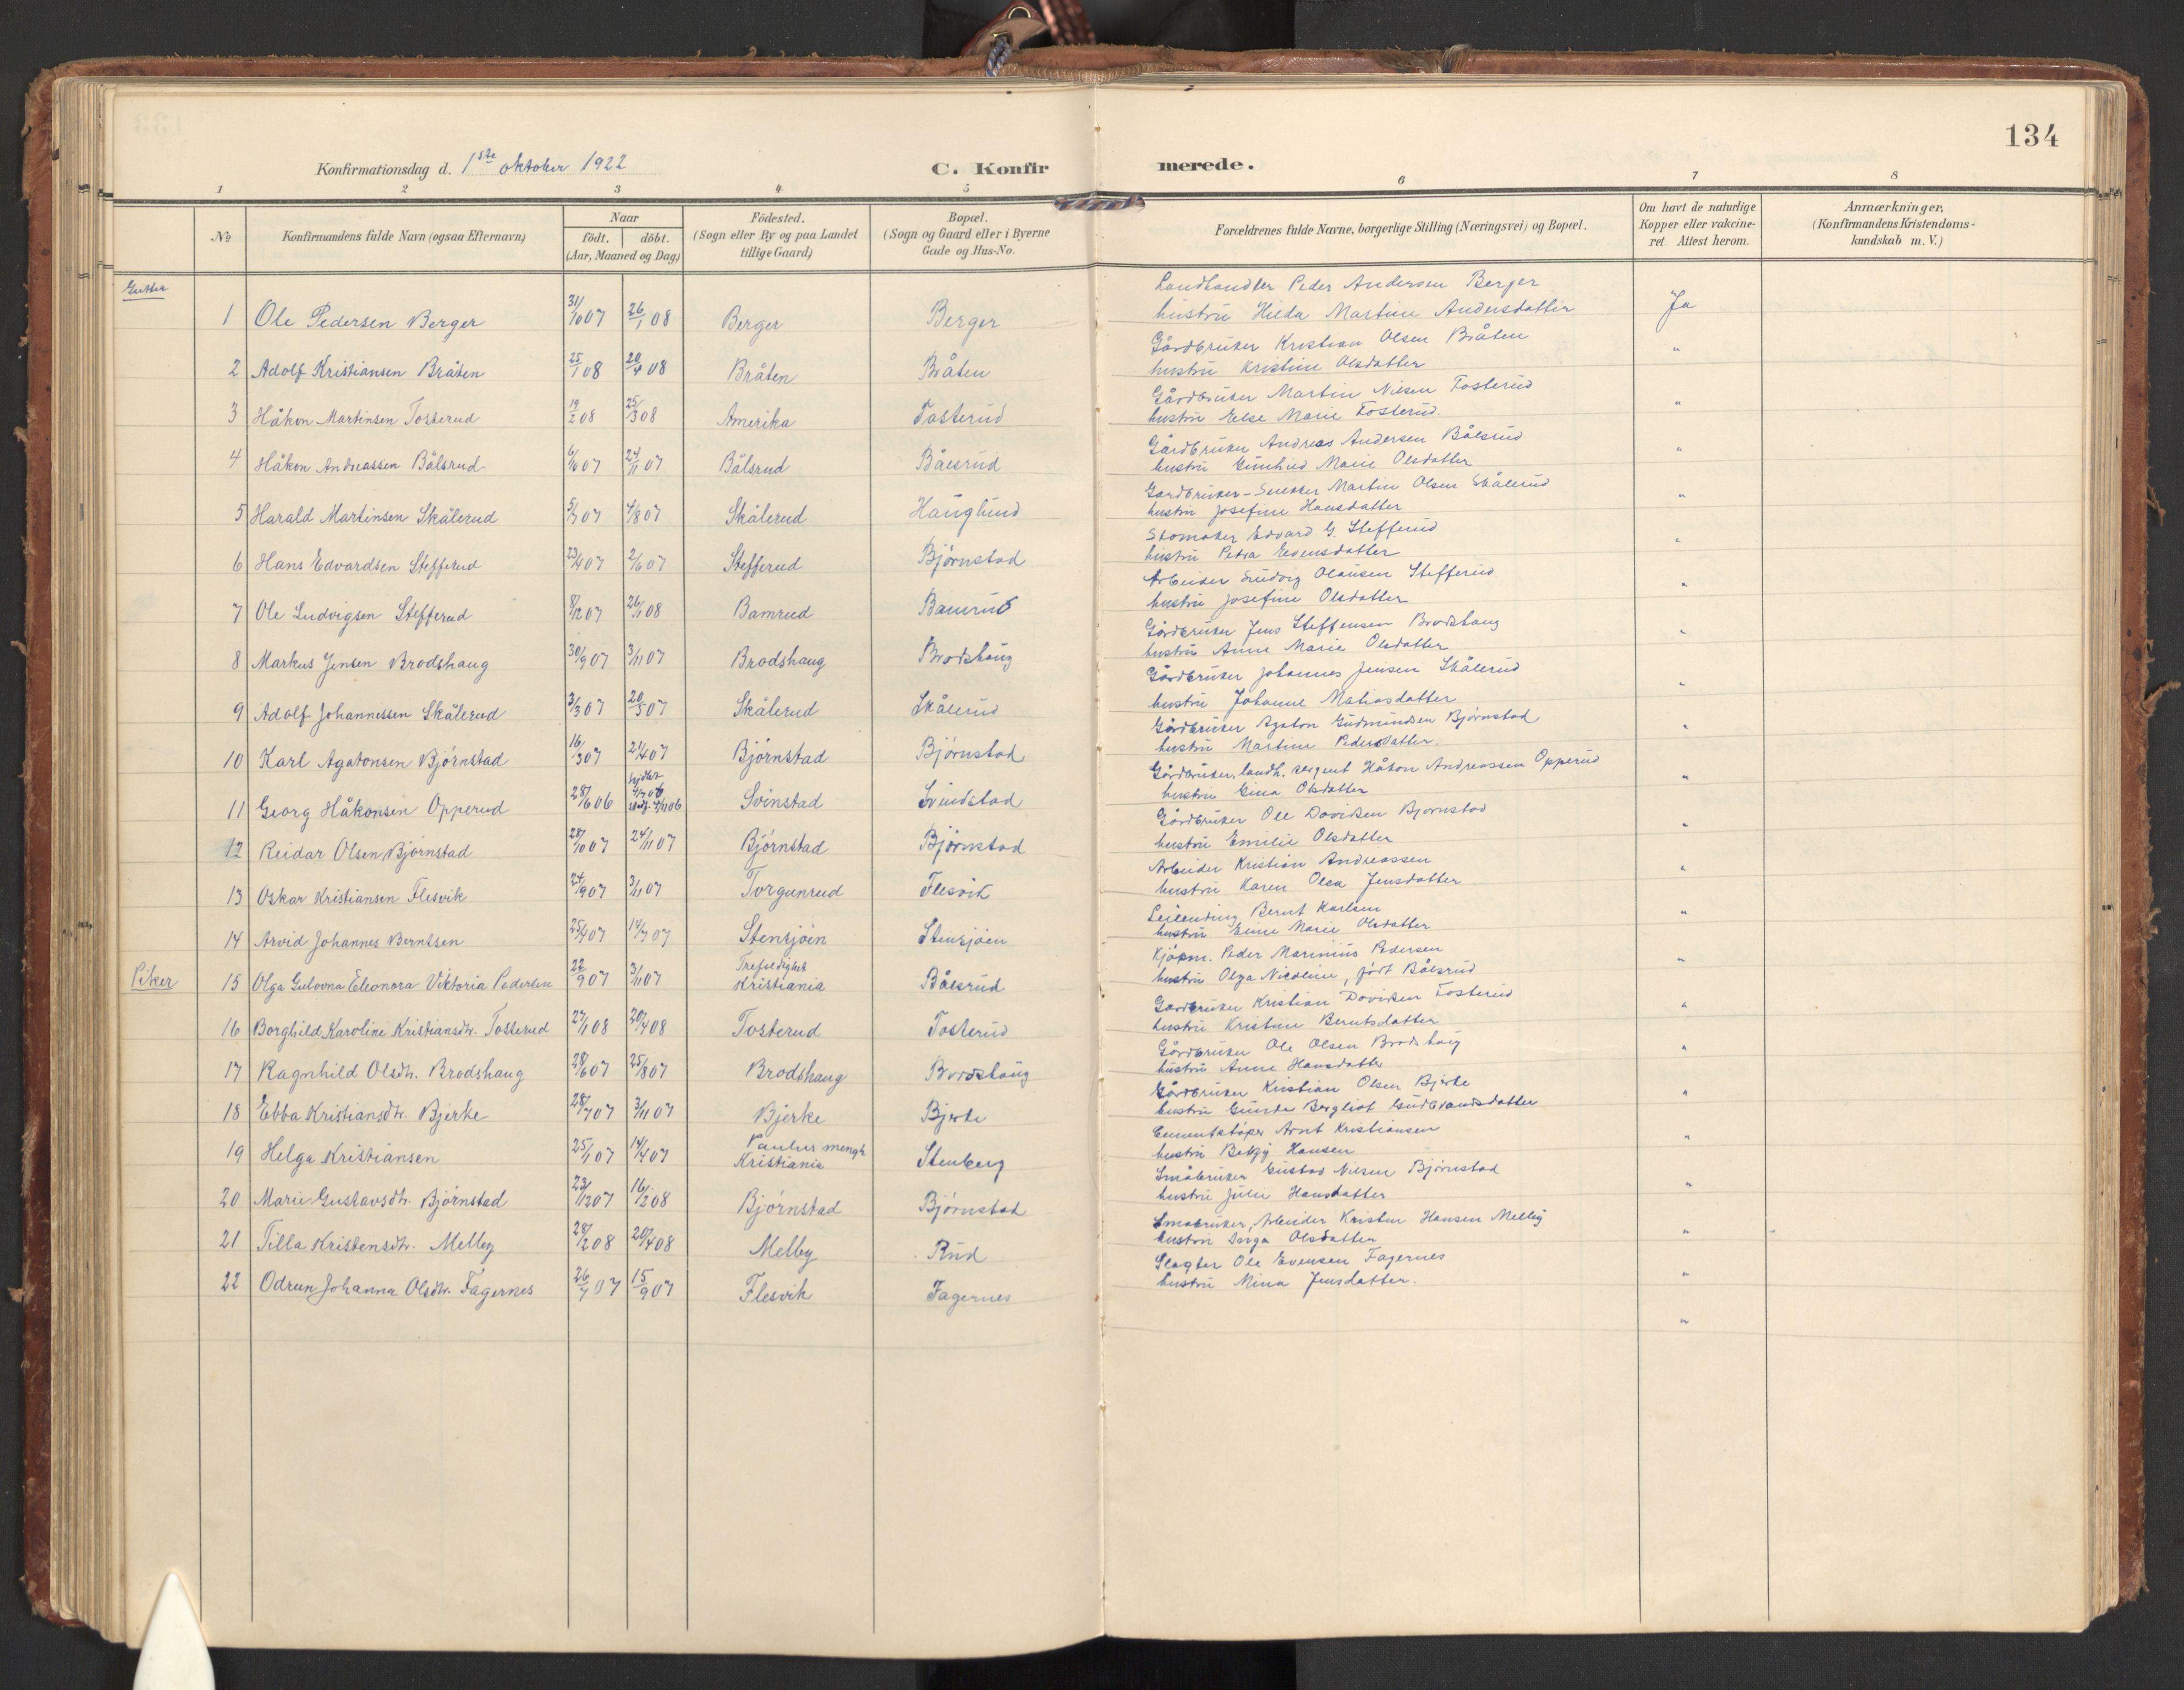 134
Konfirmationsdag d. 1ste oktober 1922
C. Konfirmerede.
1 2 3 4 5 6 7 8
No
Konfirmandens fulde Navn (ogsaa Efternavn)
Naar
födt. döbt.
(Aar, Maaned og Dag)
Födested.
(Sogn eller By og paa Landet
tillige Gaard)
Bopæl.
(Sogn og Gaard eller i Byerne
Gade og Hus-No.
Forældrenes fulde Navne, borgerlige Stilling (Næringsvei) og Bopæl.
Om havt de naturlige
Kopper eller vakcine-
ret. Attest herom.
Anmærkninger,
(Konfirmandens Kristendoms-
kundskab m. V.)
Gutter
1 Ole Pedersen Berger 31/10 07 26/1 08 Berger Berger
Landhandler Peder Andersen Berger
hustru Hilda Martine Andersdatter Ja
2 Adolf Kristiansen Bråten 25/1 08 20/4 08 Bråten Bråten
Gårdbruker Kristian Olsen Bråten
hustru Kristine Olsdatter "
3 Håkon Martinsen Tosterud 19/2 08 25/3 08 Amerika Tosterud
Gårdbruker Martin Nilsen Tosterud
hustru Else Marie Tosterud. "
4 Håkon Andreassen Bålsrud 6/10 07 24/11 07 Bålsrud Bålsrud
Gårdbruker Andreas Andersen Bålsrud
hustru Gunhild Marie Olsdatter "
5 Harald Martinsen Skålerud 5/7 07 4/8 07 Skålerud Hauglund
Gardbruker-Snekker Martin Olsen Skålerud
hustru Josefine Hansdatter "
6 Hans Edvardsen Stefferud 23/4 07 2/6 07 Stefferud Bjørnstad
Skomaker Edvard G. Stefferud
hustru Petra Evensdatter "
7 Ole Ludvigsen Stefferud 8/12 07 26/1 08 Bamrud Bamrud
Arbeider Ludvig Olausen Stefferud
hustru Josefine Olsdatter "
8 Markus Jensen Brodshaug 30/9 07 3/11 07 Brodshaug Brodshaug
Gårdbruker Jens Steffensen Brodshaug
hustru Anne Marie Olsdatter "
9 Adolf Johannessen Skålerud 3/3 07 20/5 07 Skålerud Skålerud
Gårdbruker Johannes Jensen Skålerud
hustru Johanne Matiasdatter "
10 Karl Agatonsen Bjørnstad 16/3 07 21/4 07 Bjørnstad Bjørnstad
Gårdbruker Agaton Gudmundsen Bjørnstad
hustru Martine Pedersdatter. "
11 Georg Håkonsen Opperud 28/6 06 hjdbt 4/7 06 4/11 06 Svinstad Svindstad
Gårdbruker, landh. sergent Håkon Andreassen Opperud
hustru Gina Olsdatter "
12 Reidar Olsen Bjørnstad 28/10 07 24/11 07 Bjørnstad Bjørnstad
Gårdbruker Ole Davidsen Bjørnstad
hustru Emilie Olsdatter "
13 Oskar Kristiansen Flesvik 24/9 07 3/11 07 Torgunrud Flesvik
Arbeider Kristian Andreassen
hustru Karen Olea Jensdatter "
14 Arvid Johannes Berntsen 25/4 07 14/7 07 Stensjøen Stensjøen
Leilending Bernt Karlsen
hustru Enne Marie Olsdatter "
Piker 15 Olga Gulovna Eleonora Viktoria Pedersen 22/9 07 3/11 07 Trefoldighet Kristiania Bålsrud
Kjøpm. Peder Marinius Pedersen
hustru Olga Nicoline, født Bålsrud "
16 Borghild Karoline Kristiansdtr. Tosterud 27/1 08 20/4 08 Tosterud Tosterud
Gårdbruker Kristian Davidsen Tosterud
hustru Kristine Berntsdatter "
17 Ragnhild Olsdtr. Brodshaug 28/6 07 25/8 07 Brodshaug Brodshaug
Gårdbruker Ole Olsen Brodshaug
hustru Anne Hansdatter "
18 Ebba Kristiansdtr. Bjerke 28/7 07 3/11 07 Bjerke Bjerke
Gårdbruker Kristian Olsen Bjerke
hustru Gunda Bergliot Gudbrandsdatter "
19 Helga Kristiansen 25/1 07 14/4 07 Paulus mengh Kristiania Stenberg
Cementstøper Arnt Kristiansen
hustru Betzy Hansen "
20 Marie Gustavsdtr. Bjørnstad 23/12 07 16/2 08 Bjørnstad Bjørnstad
Småbruker Gustav Nilsen Bjørnstad
hustru Julie Hansdatter "
21 Tilla Kristensdtr. Melby 28/2 08 20/4 08 Melby Rud
Småbruker, Arbeider Kristen Hansen Melby
hustru Olsdatter "
22 Odrun Johanna Olsdtr. Fagernes 26/7 07 15/9 07 Flesvik Fagernes
Slagter Ole Evensen Fagernes
hustru Mina Jensdatter. "
"